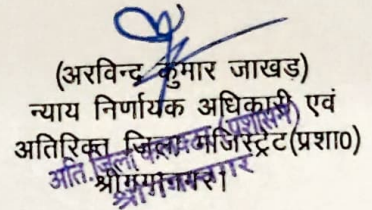 (अरविन्द कुमार जाखड़)
न्याय निर्णायक अधिकारी एवं
अतिरिक्त जिला मजिस्ट्रेट(प्रशा0)
श्रीगंगानगर।
अति. जिला कलक्टर (प्रशासन)
श्रीगंगानगर